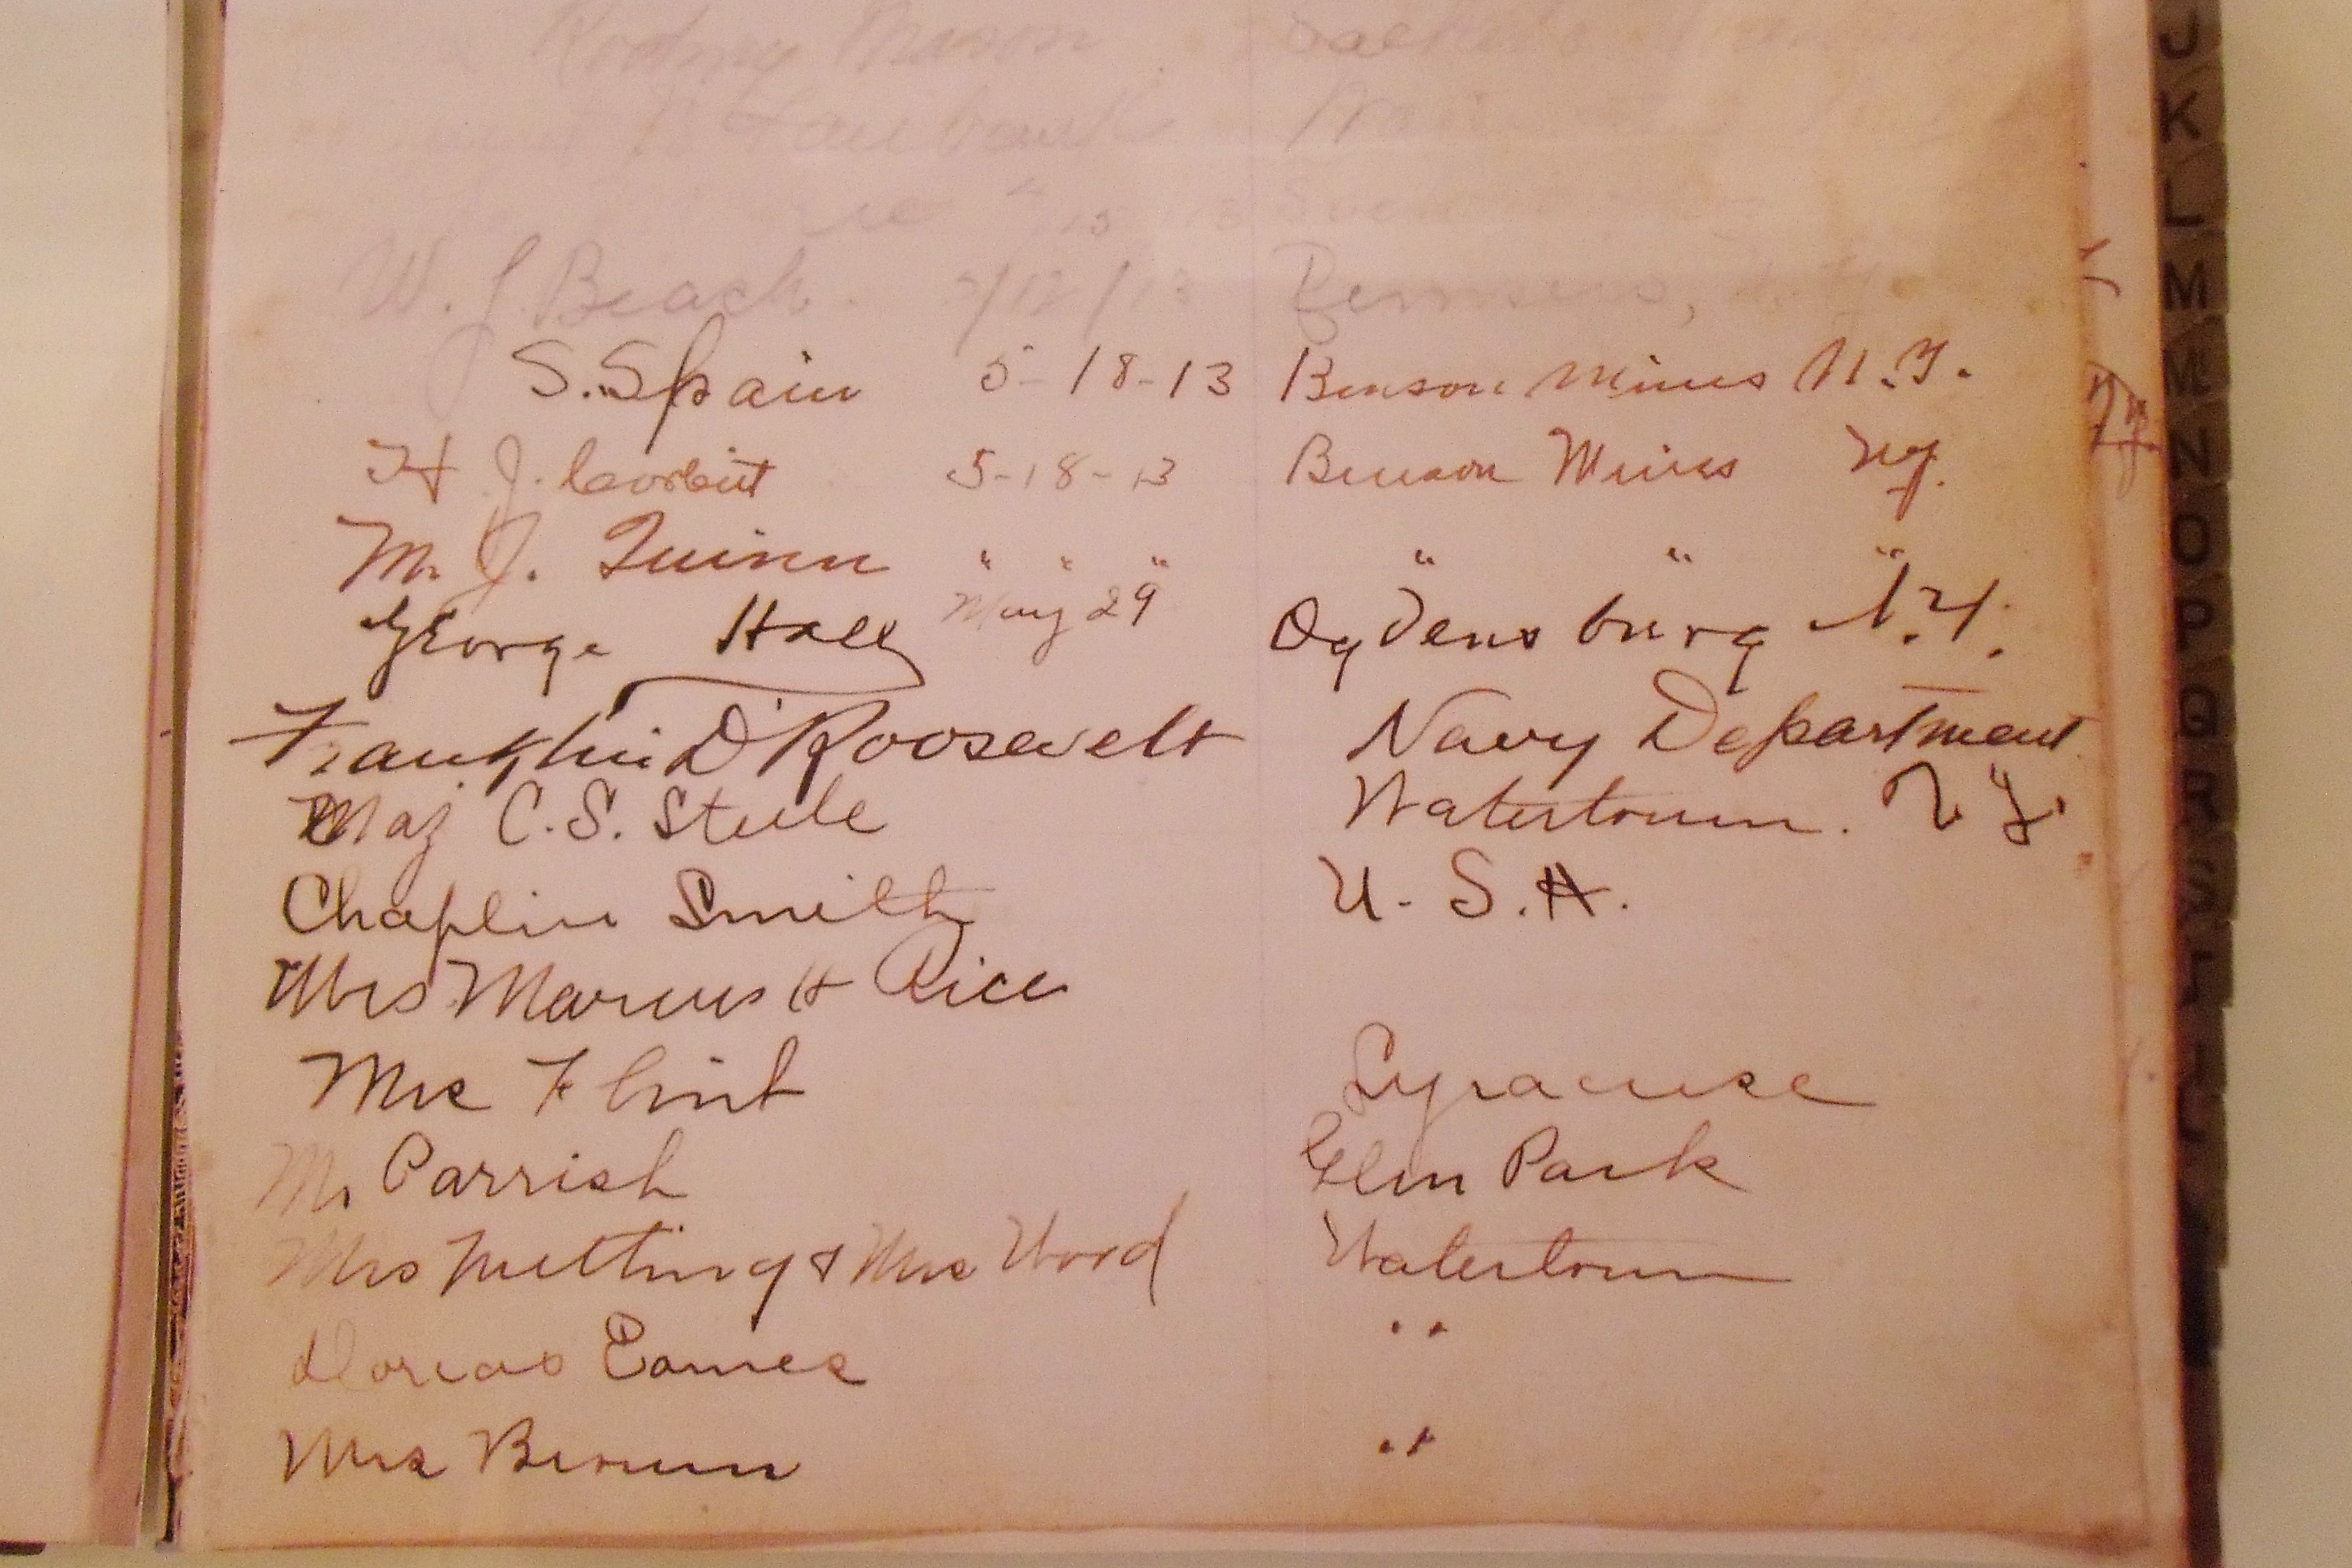 Rodney
W. J. Beach /12/13 Remsens,
S. Spain 5-18-13 Benson Mines N.Y.
H J. Corbitt 5-18-13 Benson Mines NY.
M. J. Quinn " " " " " "
George Hall May 29 Ogdensburg N.Y.
Franklin D Roosevelt Navy Department
Maj C. S. Steele Watertown. N Y.
Chaplin Smith U. S. A.
Mrs Marcus H Rice
Mrs Flint Syracuse
Mr Parrish Glen Park
Mrs & Mrs Wood Watertown
Dorcas Eames "
Mrs Brown "
J
K
L
M
Mc
N
O
P
Q
R
S
T